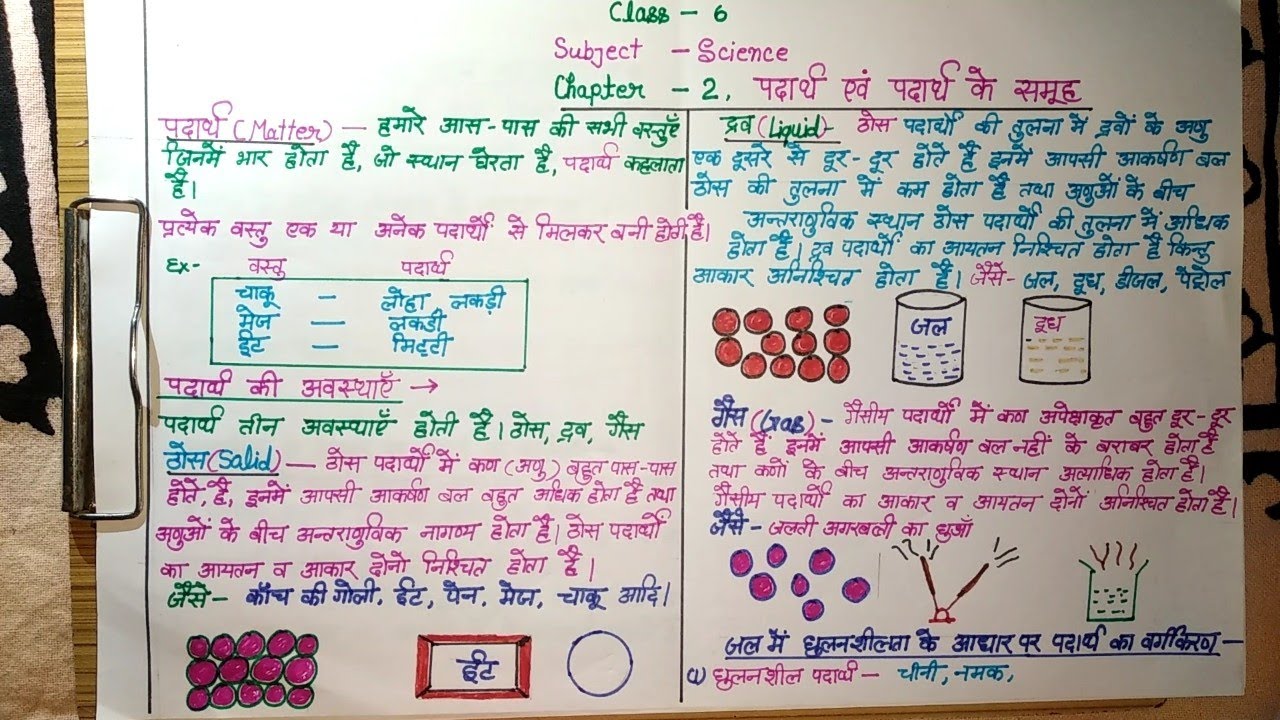 Class - 6
Subject - Science
Chapter - 2, पदार्थ एवं पदार्थ के समूह
पदार्थ (Matter) — हमारे आस-पास की सभी वस्तुएँ
जिनमें भार होता है, जो स्थान घेरता है, पदार्थ कहलाता
है।
प्रत्येक वस्तु एक या अनेक पदार्थों से मिलकर बनी होती है।
Ex- वस्तु पदार्थ
चाकू — लोहा, लकड़ी
मेज — लकडी
ईंट — मिट्टी
पदार्थ की अवस्थाएँ →
पदार्थ तीन अवस्थाएँ होती हैं। ठोस, द्रव, गैस
ठोस (Salid) — ठोस पदार्थों में कण (अणु) बहुत पास-पास
होते, है, इनमें आपसी आकर्षण बल बहुत अधिक होता है तथा
अणुओं के बीच अन्तराणुविक नागण्य होता है। ठोस पदार्थों
का आयतन व आकार दोनो निश्चित होता है।
जैसे - काँच की गोली, ईंट, पेन, मेज, चाकू आदि।
ईंट
द्रव (Liquid)- ठोस पदार्थों की तुलना में द्रवों के अणु
एक दूसरे से दूर-दूर होते है इनमें आपसी आकर्षण बल
ठोस की तुलना में कम होता है तथा अणुओं के बीच
अन्तराणुविक स्थान ठोस पदार्थों की तुलना में अधिक
होता है। द्रव पदार्थों का आयतन निश्चित होता है किन्तु
आकार अनिश्चित होता है। जैसे- जल, दूध, डीजल, पेट्रोल
जल
दूध
गैस (Gas) - गैसीय पदार्थों में कण अपेक्षाकृत बहुत दूर-दूर
होते हैं इनमें आपसी आकर्षण बल नहीं के बराबर होता है
तथा कणों के बीच अन्तराणुविक स्थान अत्याधिक होता है।
गैसीय पदार्थों का आकार व आयतन दोनों अनिश्चित होता है।
जैसे - जलती अगरबत्ती का धुआँ
जल में घुलनशीलता के आधार पर पदार्थ का वर्गीकरण —
(i) घुलनशील पदार्थ — चीनी, नमक,